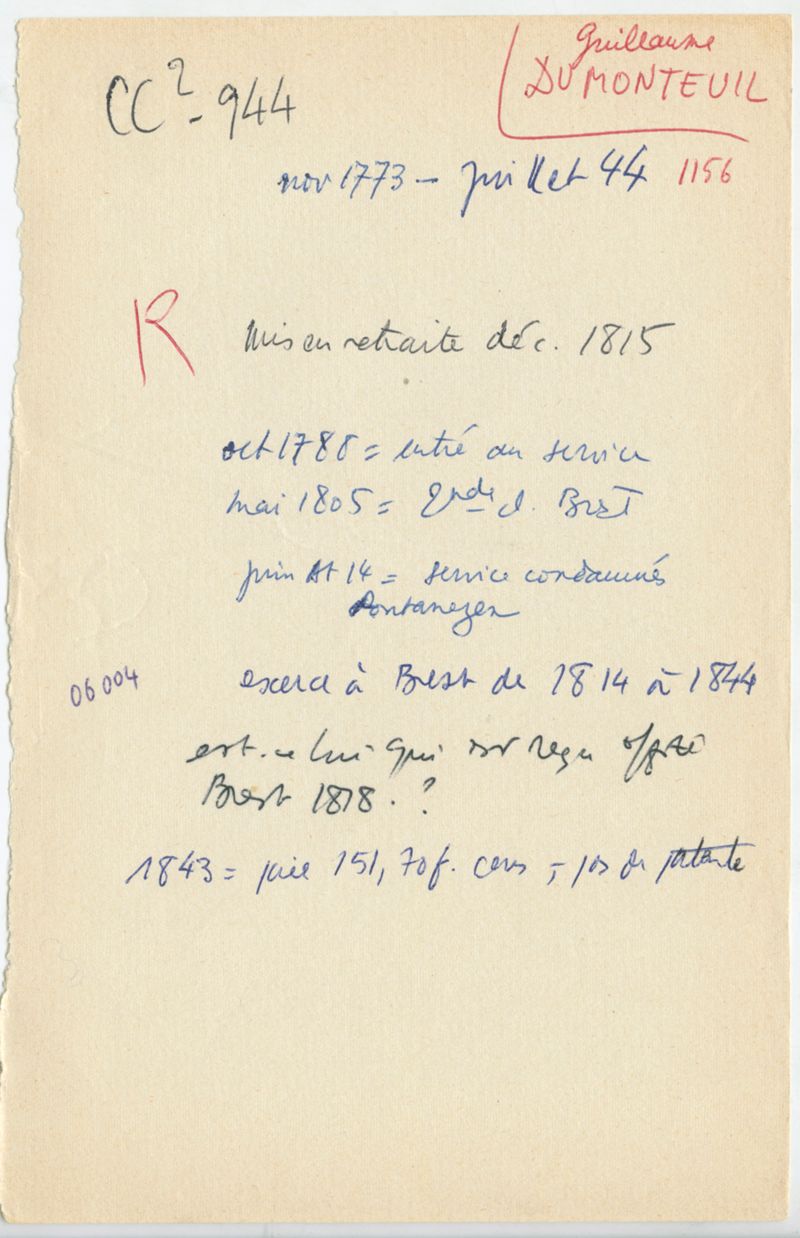 Guillaume
DUMONTEUIL
CC2 - 944
nov 1773 - juillet 44 1156
R Mis en retraite déc. 1815
oct 1788 = entré au service
mai 1805 = 2nde cl. Brest
juin 14 = service condamnés
Pontanezen
06004 exerce à Brest de 1814 à 1844
est-ce lui qui est reçu
Brest 1818. ?
1843 = paie 151,70f. cens = pas de patente